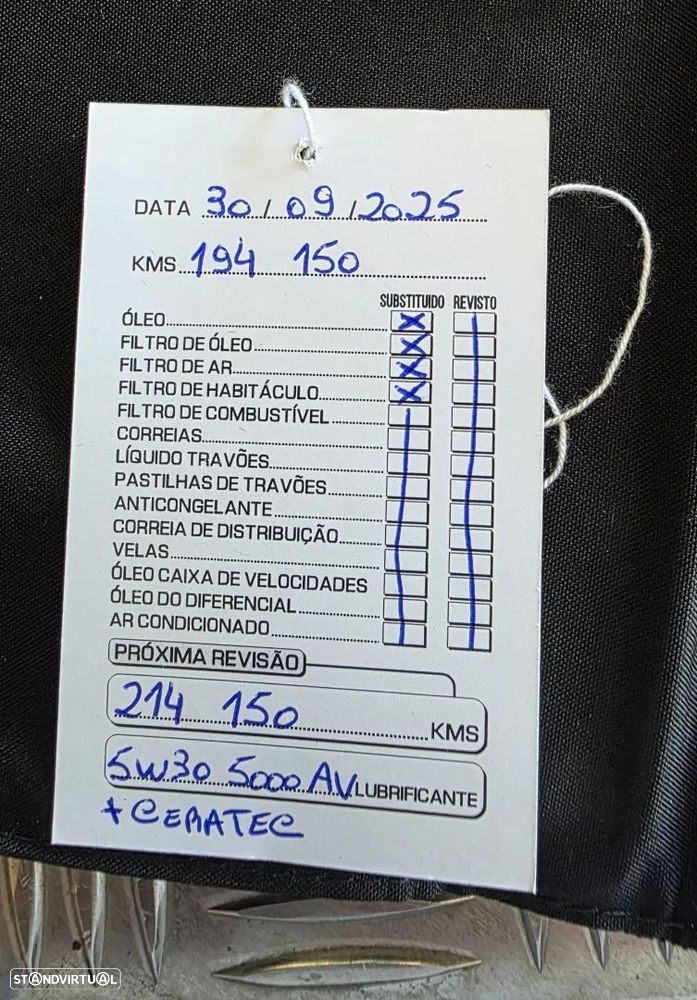 DATA 30 / 09 / 2025
KMS 194 150
SUBSTITUIDO REVISTO
ÓLEO
FILTRO DE ÓLEO
FILTRO DE AR
FILTRO DE HABITÁCULO
FILTRO DE COMBUSTÍVEL
CORREIAS
LÍQUIDO TRAVÕES
PASTILHAS DE TRAVÕES
ANTICONGELANTE
CORREIA DE DISTRIBUIÇÃO
VELAS
ÓLEO CAIXA DE VELOCIDADES
ÓLEO DO DIFERENCIAL
AR CONDICIONADO
PRÓXIMA REVISÃO
214 150 KMS
5W30 5000 AV LUBRIFICANTE
+ CERATEC
STANDVIRTUAL